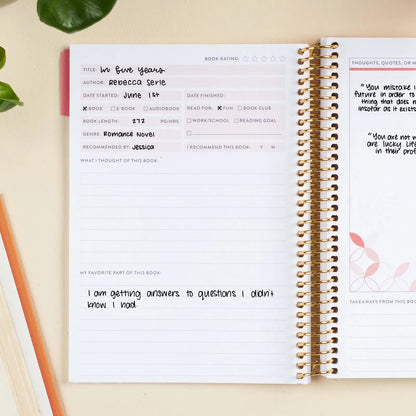 BOOK RATING:
TITLE: In five Years
AUTHOR: Rebecca Serle
DATE STARTED: June 1st DATE FINISHED:
BOOK E-BOOK AUDIOBOOK READ FOR: FUN BOOK CLUB
BOOK LENGTH: 272 PG/HRS WORK/SCHOOL READING GOAL
GENRE: Romance Novel
RECOMMENDED BY: Jessica I RECOMMEND THIS BOOK: Y N
WHAT I THOUGHT OF THIS BOOK:
MY FAVORITE PART OF THIS BOOK:
I am getting answers to questions I didn't
know I had.
THOUGHTS, QUOTES, OR M
"You mistake
future in order to
thing that does n
insofar as it exists
"You are not w
are lucky. Life
in their prof
TAKEAWAYS FROM THIS BOO